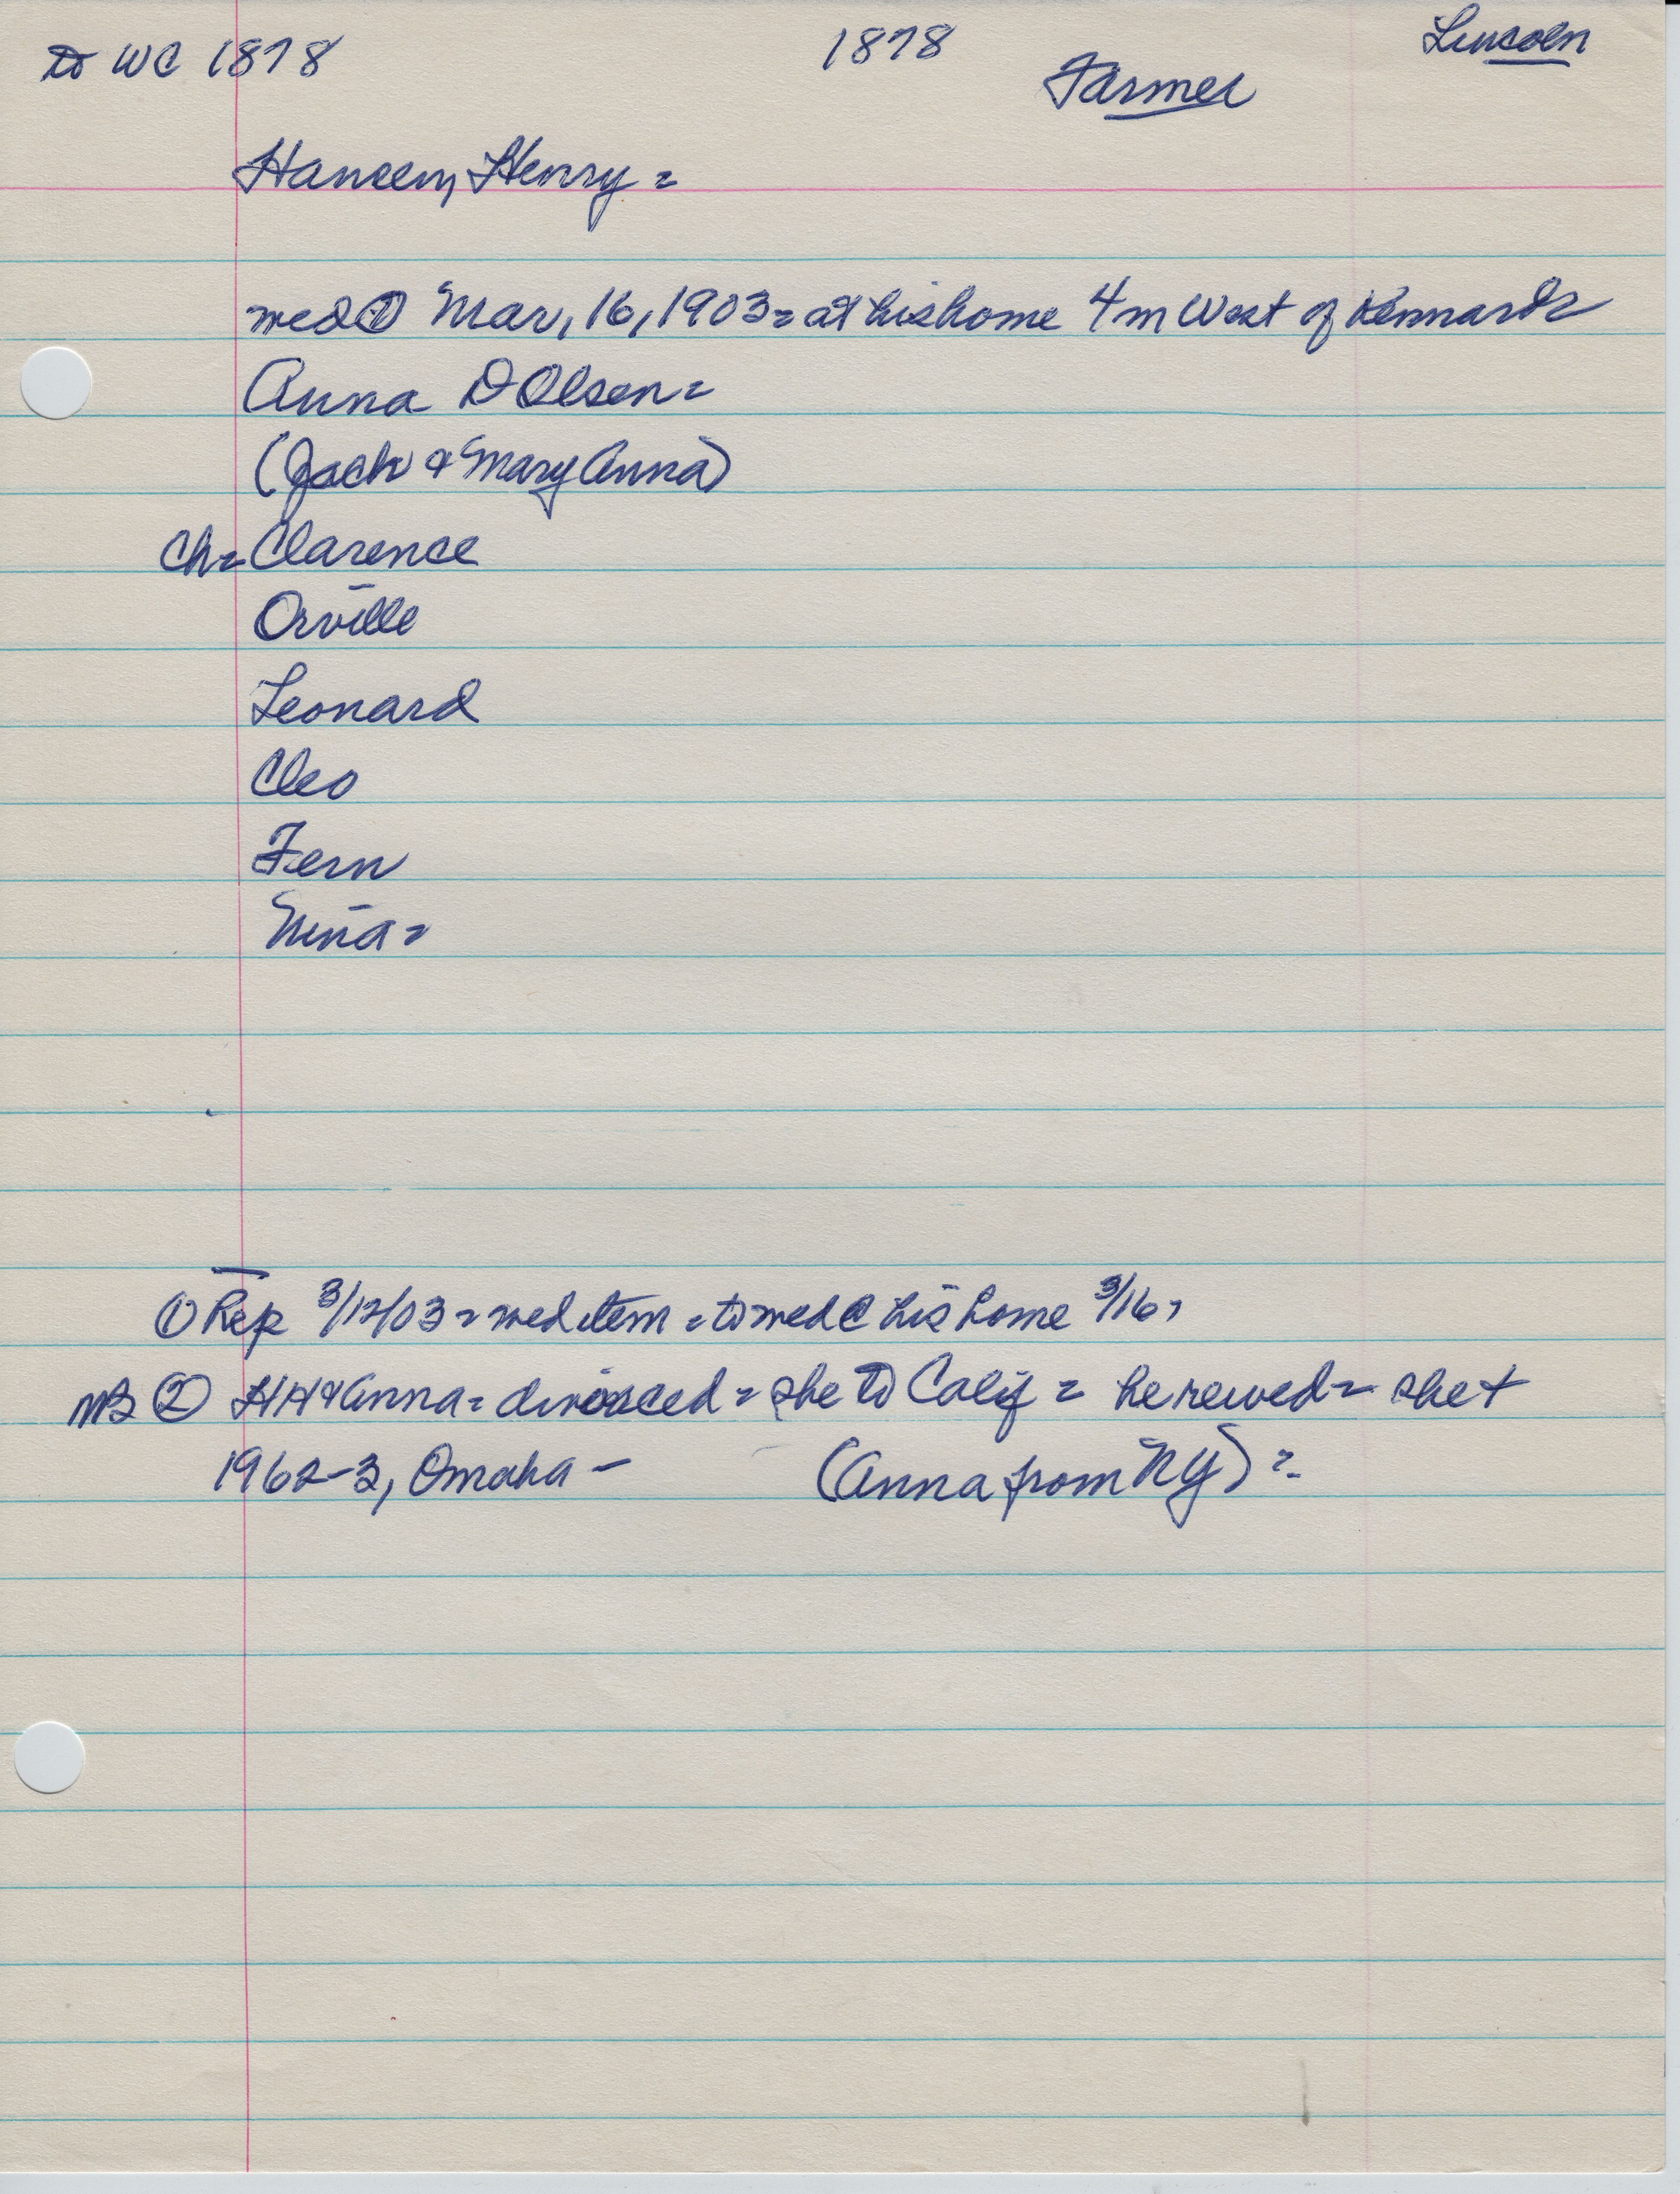 to WC 1878 1878 Lincoln
Farmer
Hansen, Henry =
wed ① Mar, 16, 1903 = at his home 4 m West of Kennard =
Anna D Olsen =
(Jack & Mary Anna)
Ch = Clarence
Orville
Leonard
Cleo
Fern
Nina =
① Rep 3/12/03 = wed item = to wed @ his home 3/16,
② HH & Anna = divorced = she to Calif = he rewed = she +
1962-3, Omaha –
(Anna from NY) =